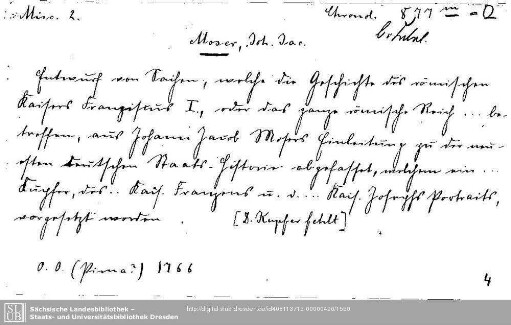 Misc. 2.
Chronol. 877 m - Ω
Moser, Joh. Jac.
Entwurf von Sachen, welche die Geschichte des römischen
Kaisers Franziscus I., oder das ganze römische Reich ... be-
treffen, aus Johann Jacob Mosers Einleitung zu der neu-
esten teutschen Staats-Historie abgefasset, welchem ein ...
Kupfer, des .. Kais. Franzens u. d. ... Kais. Josephs Portraits,
vorgesetzt worden. [D. Kupfer fehlt]
O. O. (Pirna?) 1766
4
SLUB
Sächsische Landesbibliothek –
Staats- und Universitätsbibliothek Dresden